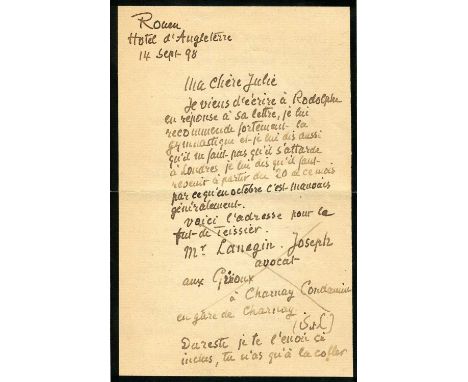 Rouen
Hotel d'Angleterre
14 Sept 98
Ma chère Julie
Je viens d'écrire à Rodolphe
en réponse à sa lettre, je lui
recommende fortement la
gymnastique et je lui dis aussi
qu'il ne faut pas qu'il s'attarde
à Londres, je lui dis qu'il faut
revenir à partir du 20 de ce mois
parce qu'en octobre c'est mauvais
généralement.
Voici l'adresse pour le
fut de Teissier.
Mr Joseph
avocat
aux
à Charnay Condamine
en gare de Charnay
(S et L)
Du reste je te l'envoi ci
inclus, tu n'as qu'à la coller